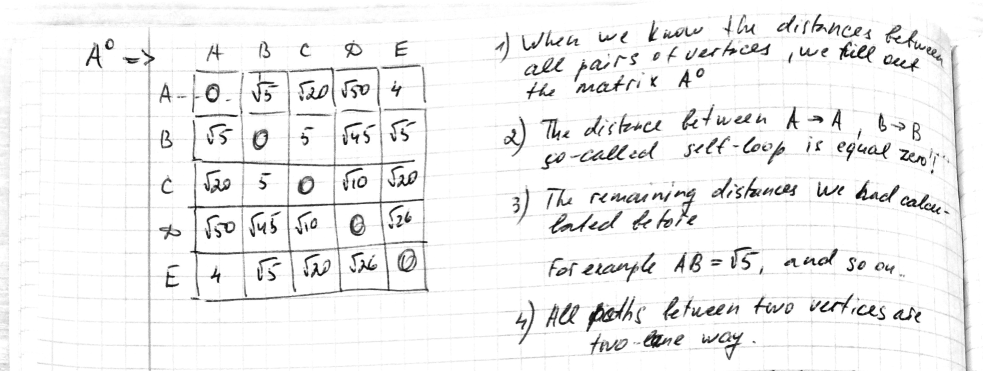 A⁰ =>
A B C D E
A 0 √5 √20 √50 4
B √5 0 5 √45 √5
C √20 5 0 √10 √20
D √50 √45 √10 0 √26
E 4 √5 √20 √26 0
1) When we know the distances between
all pairs of vertices, we fill out
the matrix A⁰
2) The distance between A → A, B → B
so-called self-loop is equal zero!
3) The remaining distances we had calcu-
lated before
For example AB = √5, and so on..
4) All paths between two vertices are
two-lane way.